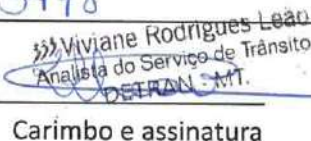 Viviane Rodrigues Leão
Analista do Serviço de Trânsito
DETRAN - MT.
Carimbo e assinatura